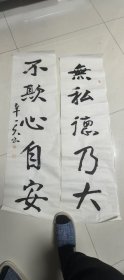 無私德乃大
不欺心自安